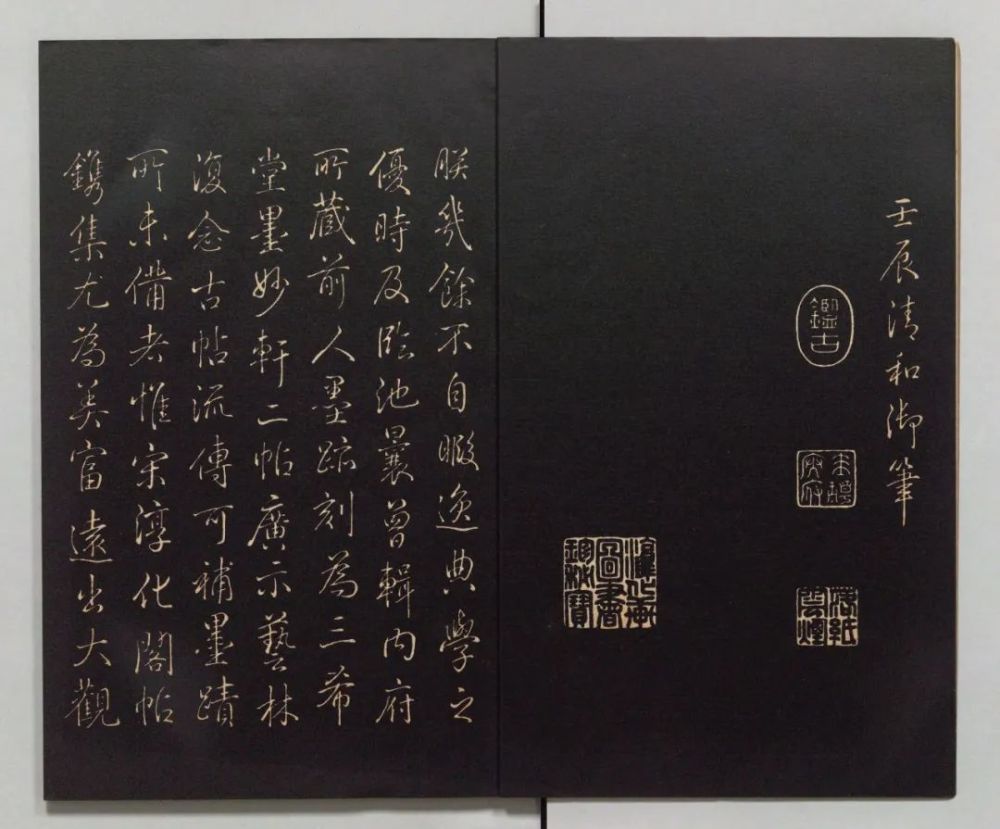 壬辰清和御筆
鑑古
落紙
雲煙
淳化軒
圖書
珍秘寶
朕幾餘不自暇逸典學之
優時及臨池曩曾輯内府
所藏前人墨跡刻為三希
堂墨妙軒二帖廣示藝林
復念古帖流傳可補墨蹟
所未備者惟宋淳化閣帖
鐫集尤為美富遠出大觀